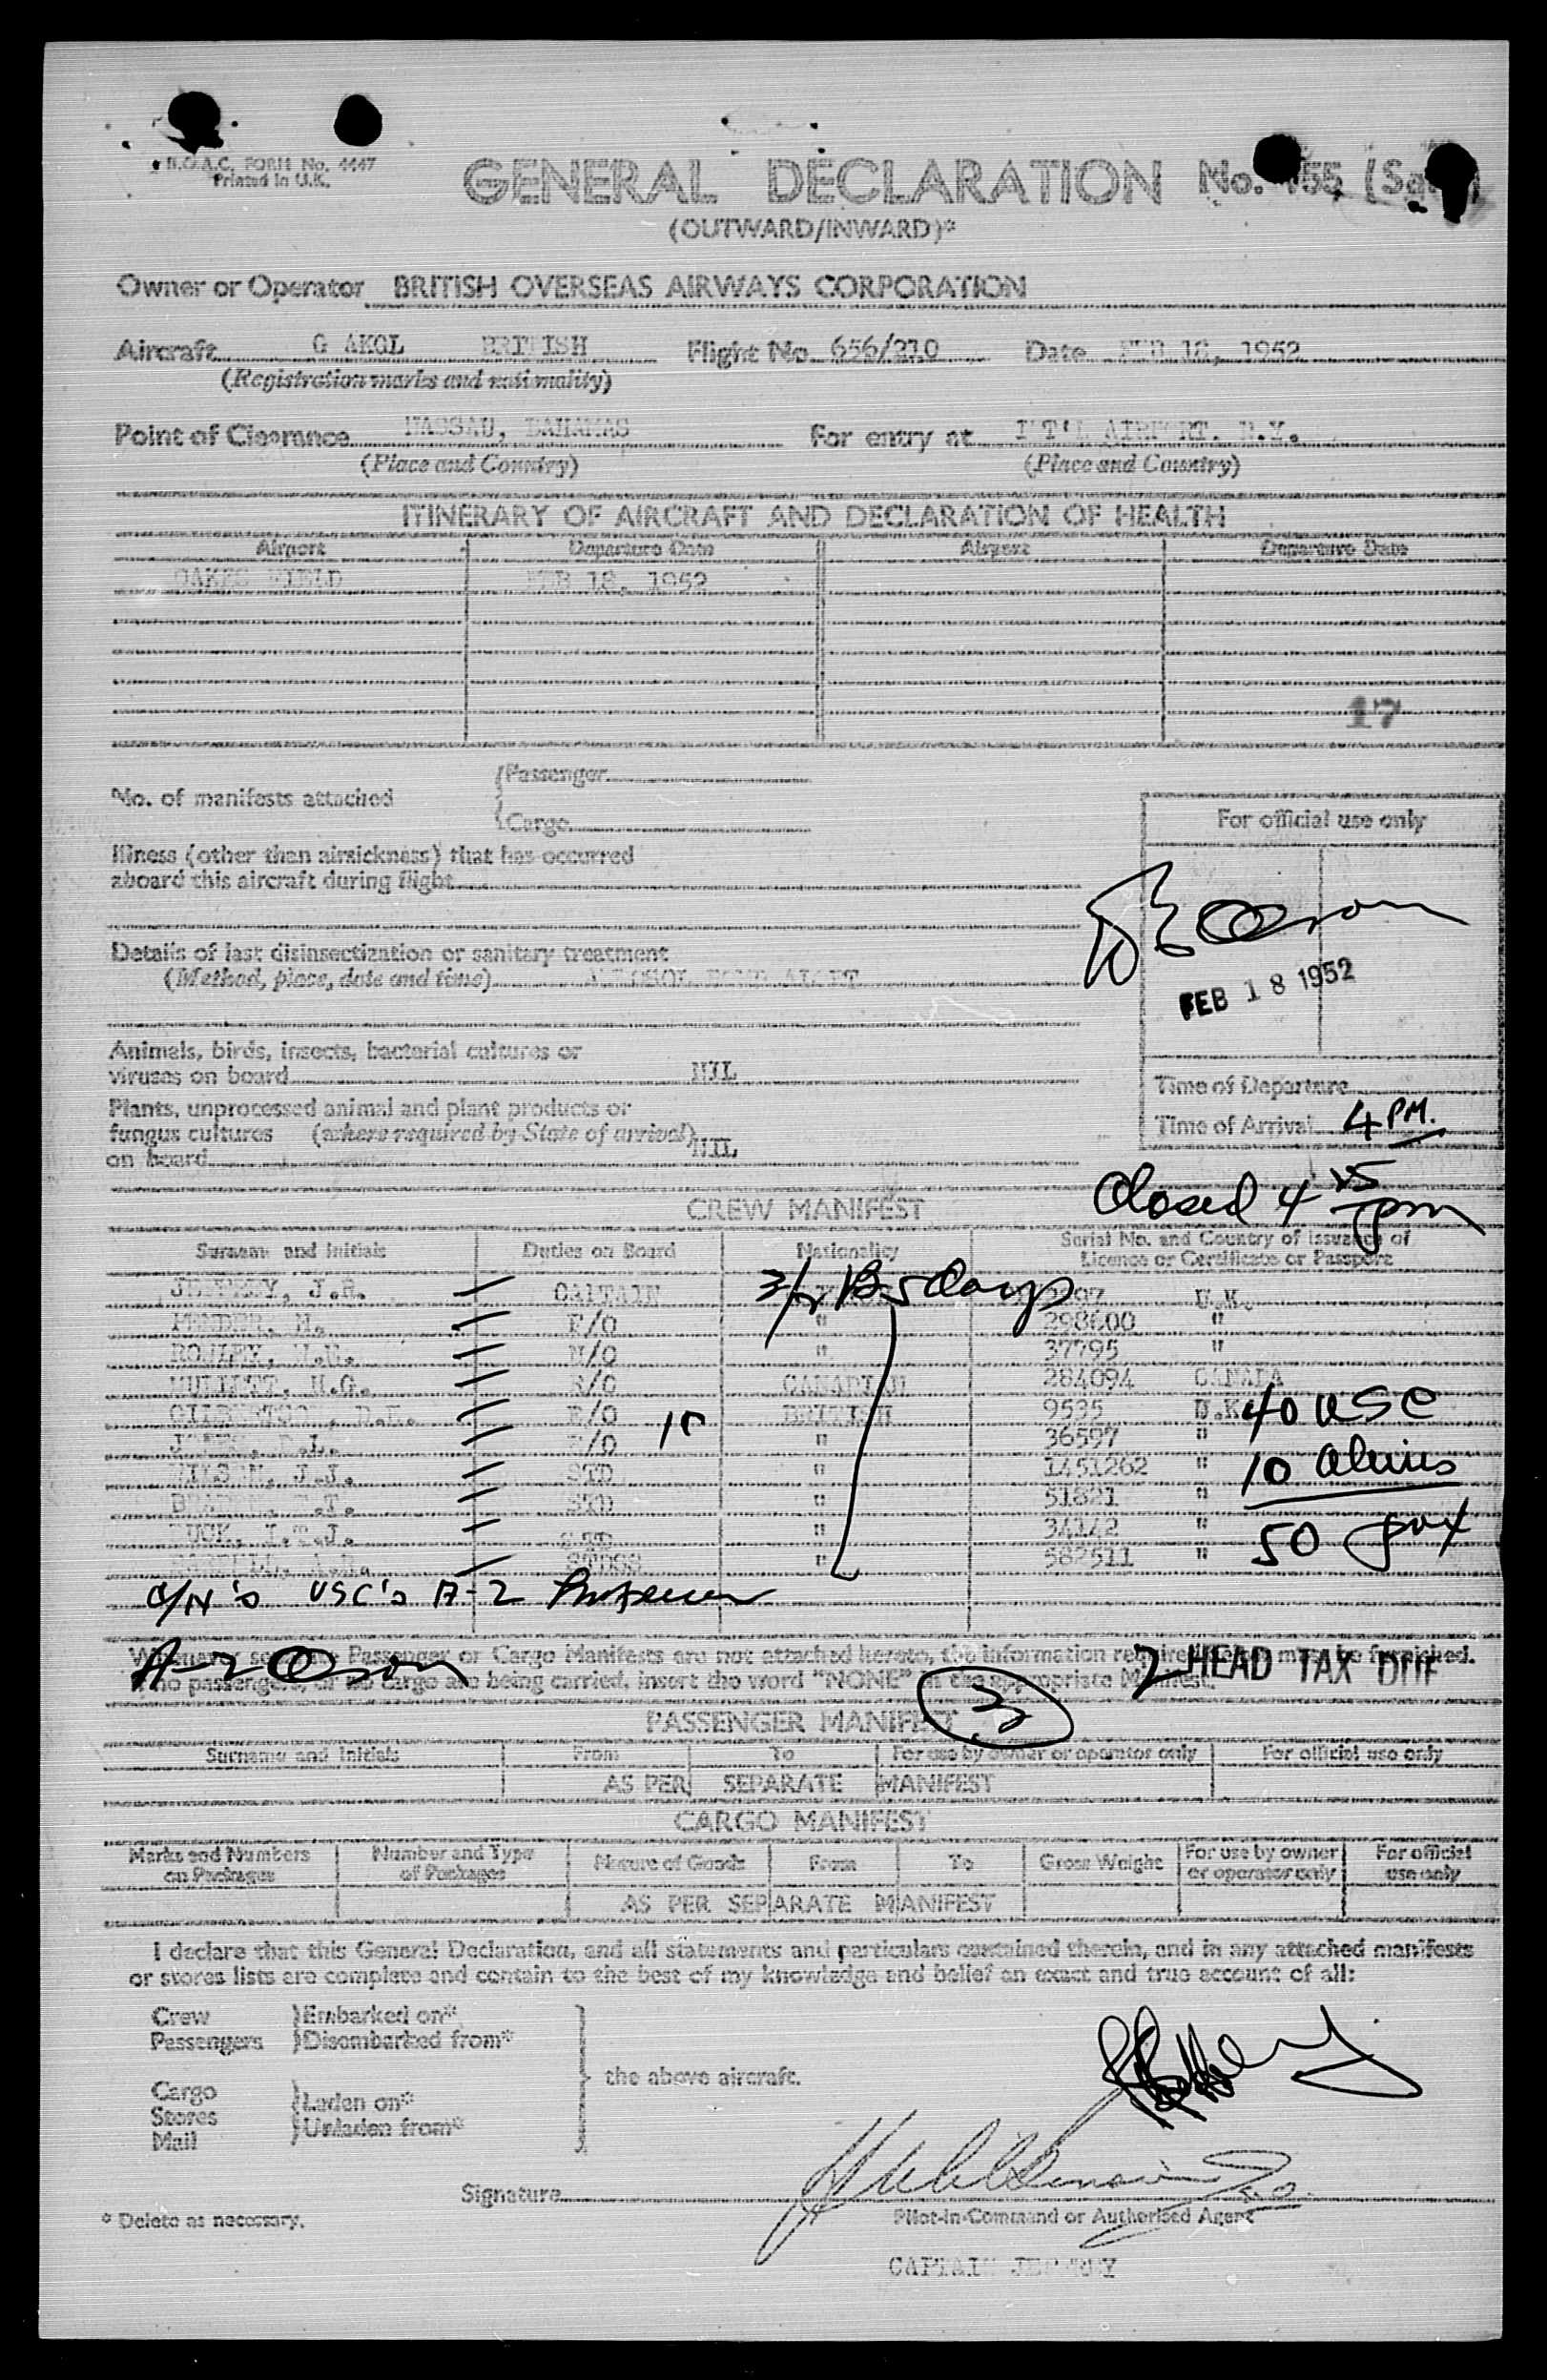 B.O.A.C. FORM No. 4447
Printed in U.K.
GENERAL DECLARATION No.
(OUTWARD/INWARD)*
Owner or Operator BRITISH OVERSEAS AIRWAYS CORPORATION
Aircraft BRITISH Flight No. 656/210 Date FEB 18, 1952
(Registration marks and nationality)
Point of Clearance NASSAU, BAHAMAS For entry at I'T'L AIRPORT. N.Y.
(Place and Country) (Place and Country)
ITINERARY OF AIRCRAFT AND DECLARATION OF HEALTH
Airport Departure Date Airport Departure Date
OAKES FIELD FEB 18, 1952
17
No. of manifests attached {Passenger
{Cargo
For official use only
Illness (other than airsickness) that has occurred
aboard this aircraft during flight
Details of last disinsectization or sanitary treatment
(Method, place, date and time) AEROSOL BOMB
FEB 18 1952
Animals, birds, insects, bacterial cultures or
viruses on board NIL
Time of Departure
Plants, unprocessed animal and plant products or
fungus cultures (where required by State of arrival)
on board NIL
Time of Arrival 4 PM.
Closed 4 25 pm
CREW MANIFEST
Surname and Initials Duties on Board Nationality Serial No. and Country of Issuance of
Licence or Certificate or Passport
J.R. CAPTAIN U.K.
F/O " 298600 "
N/O " 37795 "
R/O CANADIAN 284094 CANADA
E/O BRITISH 9535 U.K. 40 USC
" 36597 "
J.J. STD " 1451262 " 10 aliens
STD " 51821 "
STD " 34142 " 50 pax
STDSS " 582511 "
USC's A-2
Whenever separate Passenger or Cargo Manifests are not attached hereto, the information required must be furnished.
If no passengers, or no cargo are being carried, insert the word "NONE" in the appropriate Manifest.
2 HEAD TAX DUE
PASSENGER MANIFEST
Surname and Initials From To For use by owner or operator only For official use only
AS PER SEPARATE MANIFEST
CARGO MANIFEST
Marks and Numbers on Packages Number and Type of Packages Nature of Goods From To Gross Weight For use by owner or operator only For official use only
AS PER SEPARATE MANIFEST
I declare that this General Declaration, and all statements and particulars contained therein, and in any attached manifests
or stores lists are complete and contain to the best of my knowledge and belief an exact and true account of all:
Crew }Embarked on*
Passengers }Disembarked from*
the above aircraft.
Cargo
Stores }Laden on*
Mail }Unladen from*
Signature
* Delete as necessary. Pilot-in-Command or Authorised Agent
CAPTAIN